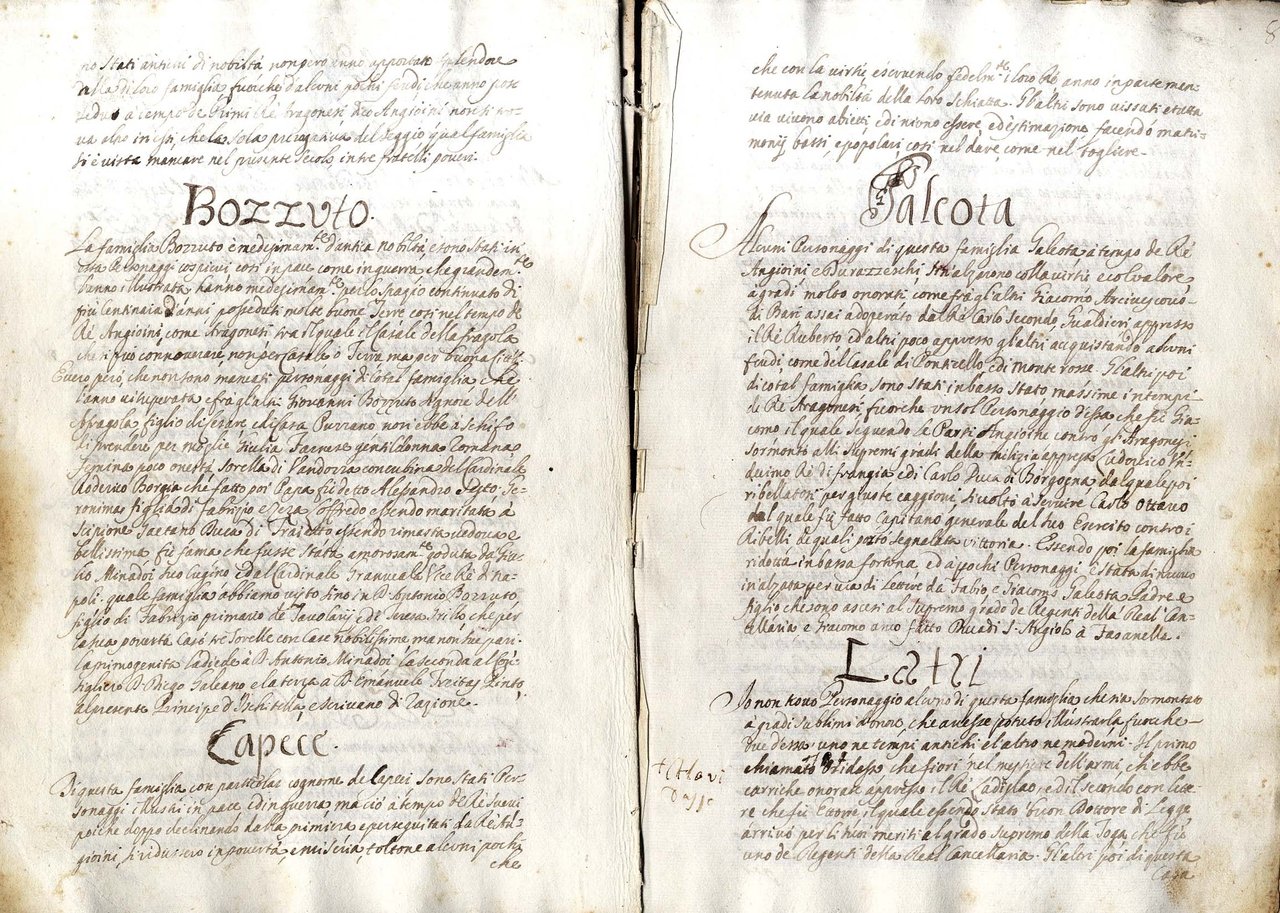 no stati antichi di nobiltà non però anno apportato splendore
alla di loro famiglia fuorche d'alcuni pochi feudi che anno pos-
seduto a tempo de Primi Ré Aragonesi de Angioini non si tro-
va altro in essi, che la sola prerogativa del seggio, qual famiglia
si è vista mancare nel presente secolo, in tre fratelli poveri.
Bozzuto.
La famiglia Bozzuto è medesimam.te d'antica nobiltà, e sono stati in
essa Personaggi cospicui così in pace, come in guerra, che grandem.te
l'anno illustrata, hanno medesimam.te per lo spazio continuato di
più centinaia d'anni posseduti molte buone Terre così nel tempo de
Ré Angioini, come Aragonesi fra il quale il Casale della fragola
che si può connomerare, non per Casale, o Terra, ma per buona città
È vero però, che non sono mancati personaggi di cotal famiglia che
l'anno vituperata, e fra gl'altri Giovanni Bozzuto Signore dell'
Afragola figlio di Cesare di fasa Purriano non ebbe a schifo
di prendere per moglie Giulia Farnese gentildonna Romana,
femina poco onesta sorella di Vandozza concubina del Cardinale
Roderico Borgia che fatto poi Papa fù detto Alessandro Sesto. Ge-
ronima figlia di Fabrizio e Loffredo essendo maritata à
Scipione Gaetano Duca di Traietto essendo rimasta vedova e
bellissima fù fama che fusse stata amorosam.te goduta da Giu-
lio Minadoi suo cugino ed al Cardinale Granuela Vice Ré di Na-
poli. quale famiglia abbiamo visto fino in D. Antonio Bozzuto
figlio di Fabrizio primario de Tavolarij e di Teresa Trillo che per
la sua povertà Casò tre Sorelle con Case nobilissime ma non sue pari.
La primogenita la diede à D. Antonio Minadoi la seconda al Con-
sigliero D. Diego Galeano e la terza a D. Emanuele Freitas Pinto,
al presente Principe d'Ischitella, e scrivano di Razione.
Capece.
Di questa famiglia con particolar cognome de Capeci sono stati Per-
sonaggi illustri in pace, ed in guerra, ma ciò a tempo de Ré suevi
poiche doppo declinando dalla primiera e perseguitati da Ré An-
gioini, si ridussero in povertà, e miseria, toltone alcuni pochi
che
8
che con la virtù e servendo fedelm.te i loro Ré anno in parte man-
tenuta la nobiltà della loro schiatta. Gl'altri sono vissuti e tutta
via vivono abietti, e di niuno essere, ed estimazione, facendo matri-
monij bassi, e popolari, così nel dare, come nel togliere.
Galeota
Alcuni Personaggi di questa famiglia Galeota a tempo de Ré
Angioini e Durazzeschi, s'inalzarono colla virtù, e col valore,
a gradi molto onorati, come fra gl'altri Giacomo Arcivescovo
di Bari assai adoperato dal Ré Carlo Secondo, Gualdieri appresso
il Ré Ruberto ed altri poco appresso gl'altri acquistando alcuni
feudi, come del Casale di Ponticello, e di monte rosse. Gl'altri poi
di cotal famiglia sono stati in basso stato, massime in tempi
de Ré Aragonesi, fuorche un sol Personaggio d'essa, che fù Gia-
como il quale seguendo le Parti Angioine contro gl'Aragonesi
sormontò alli supremi gradi della milizia appresso Ludovico Un-
decimo Ré di Francia, e di Carlo Duca di Borgogna, dal quale poi
ribellatosi per giuste caggioni, si voltò à servire Carlo ottavo
dal quale fù fatto Capitano generale del suo Esercito contro i
Ribelli de quali portò segnalata vittoria. Essendo poi la famiglia
ridotta in bassa fortuna, ed a pochi Personaggi è stata di nuovo
inalzata per via di lettere da Fabio, e Giacomo Galeota Padre e
figlio che sono ascesi al Supremo grado de Regenti della Real Can-
cellaria e Giacomo anco fatto Duca di S. Angiolo à Fasanella.
Latri
Io non trovo Personaggio alcuno di questa famiglia che sia sormontato
à gradi sublimi d'onore, che avesse potuto illustrarla fuorche
due d'essa, uno ne tempi antichi e l'altro ne moderni. Il primo
chiamato che fiorì nel mestiere dell'armi, che ebbe
carriche onorate appresso il Ré Ladislao, ed il secondo con lette-
re che fù Ettorre, il quale essendo stato buon Dottore di Legge,
arrivò per li suoi meriti al grado supremo della Toga, che fù
uno de Regenti della Real Cancellaria. Gl'altri poi di questa
Casa